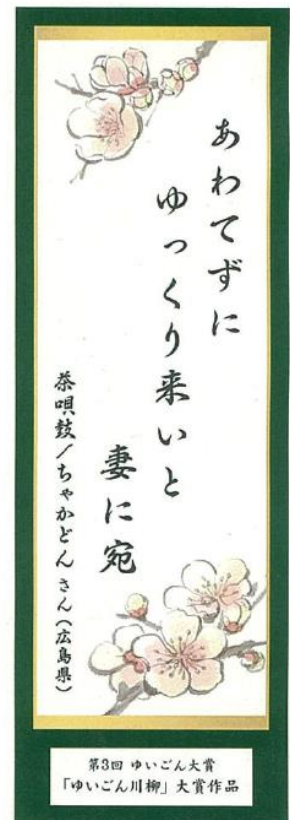 あわてずに
ゆっくり来いと
妻に宛
茶唄鼓/ちゃかどん さん(広島県)
第3回 ゆいごん大賞
「ゆいごん川柳」大賞作品